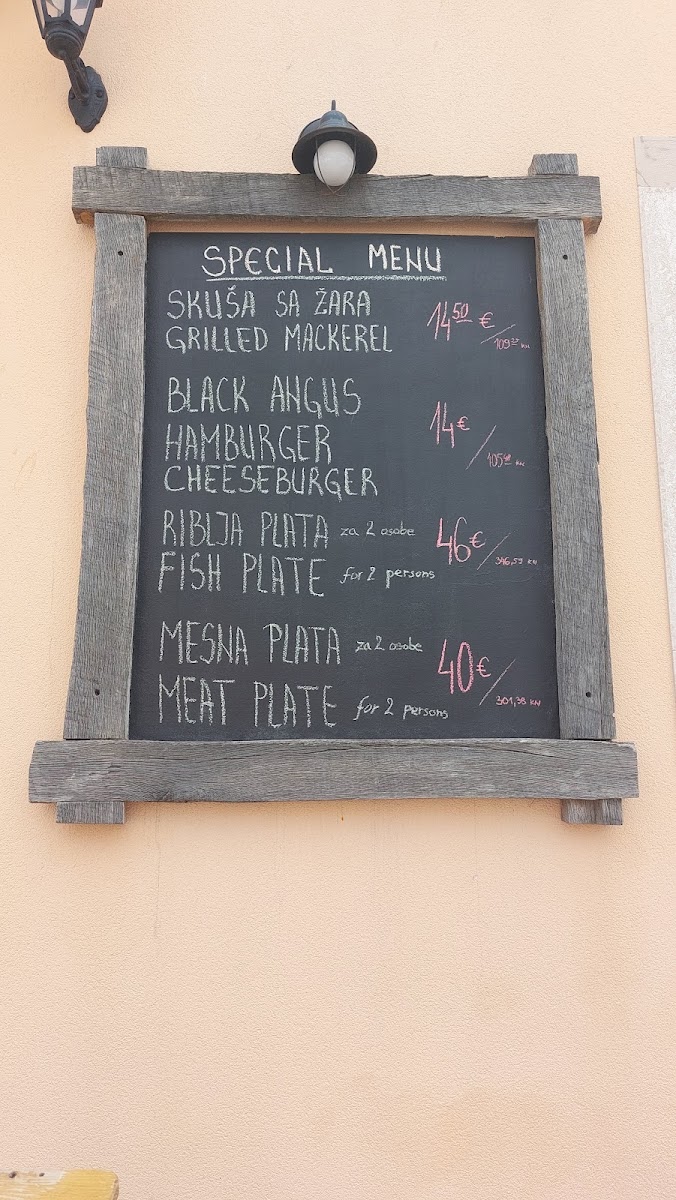 SPECIAL MENU
SKUŠA SA ŽARA
GRILLED MACKEREL
14⁵⁰ € / 109²⁵ KN
BLACK ANGUS
HAMBURGER
CHEESEBURGER
14€ / 105⁴⁸ KN
RIBLJA PLATA za 2 osobe
FISH PLATE for 2 persons
46€ / 346,59 KN
MESNA PLATA za 2 osobe
MEAT PLATE for 2 persons
40€ / 301,38 KN